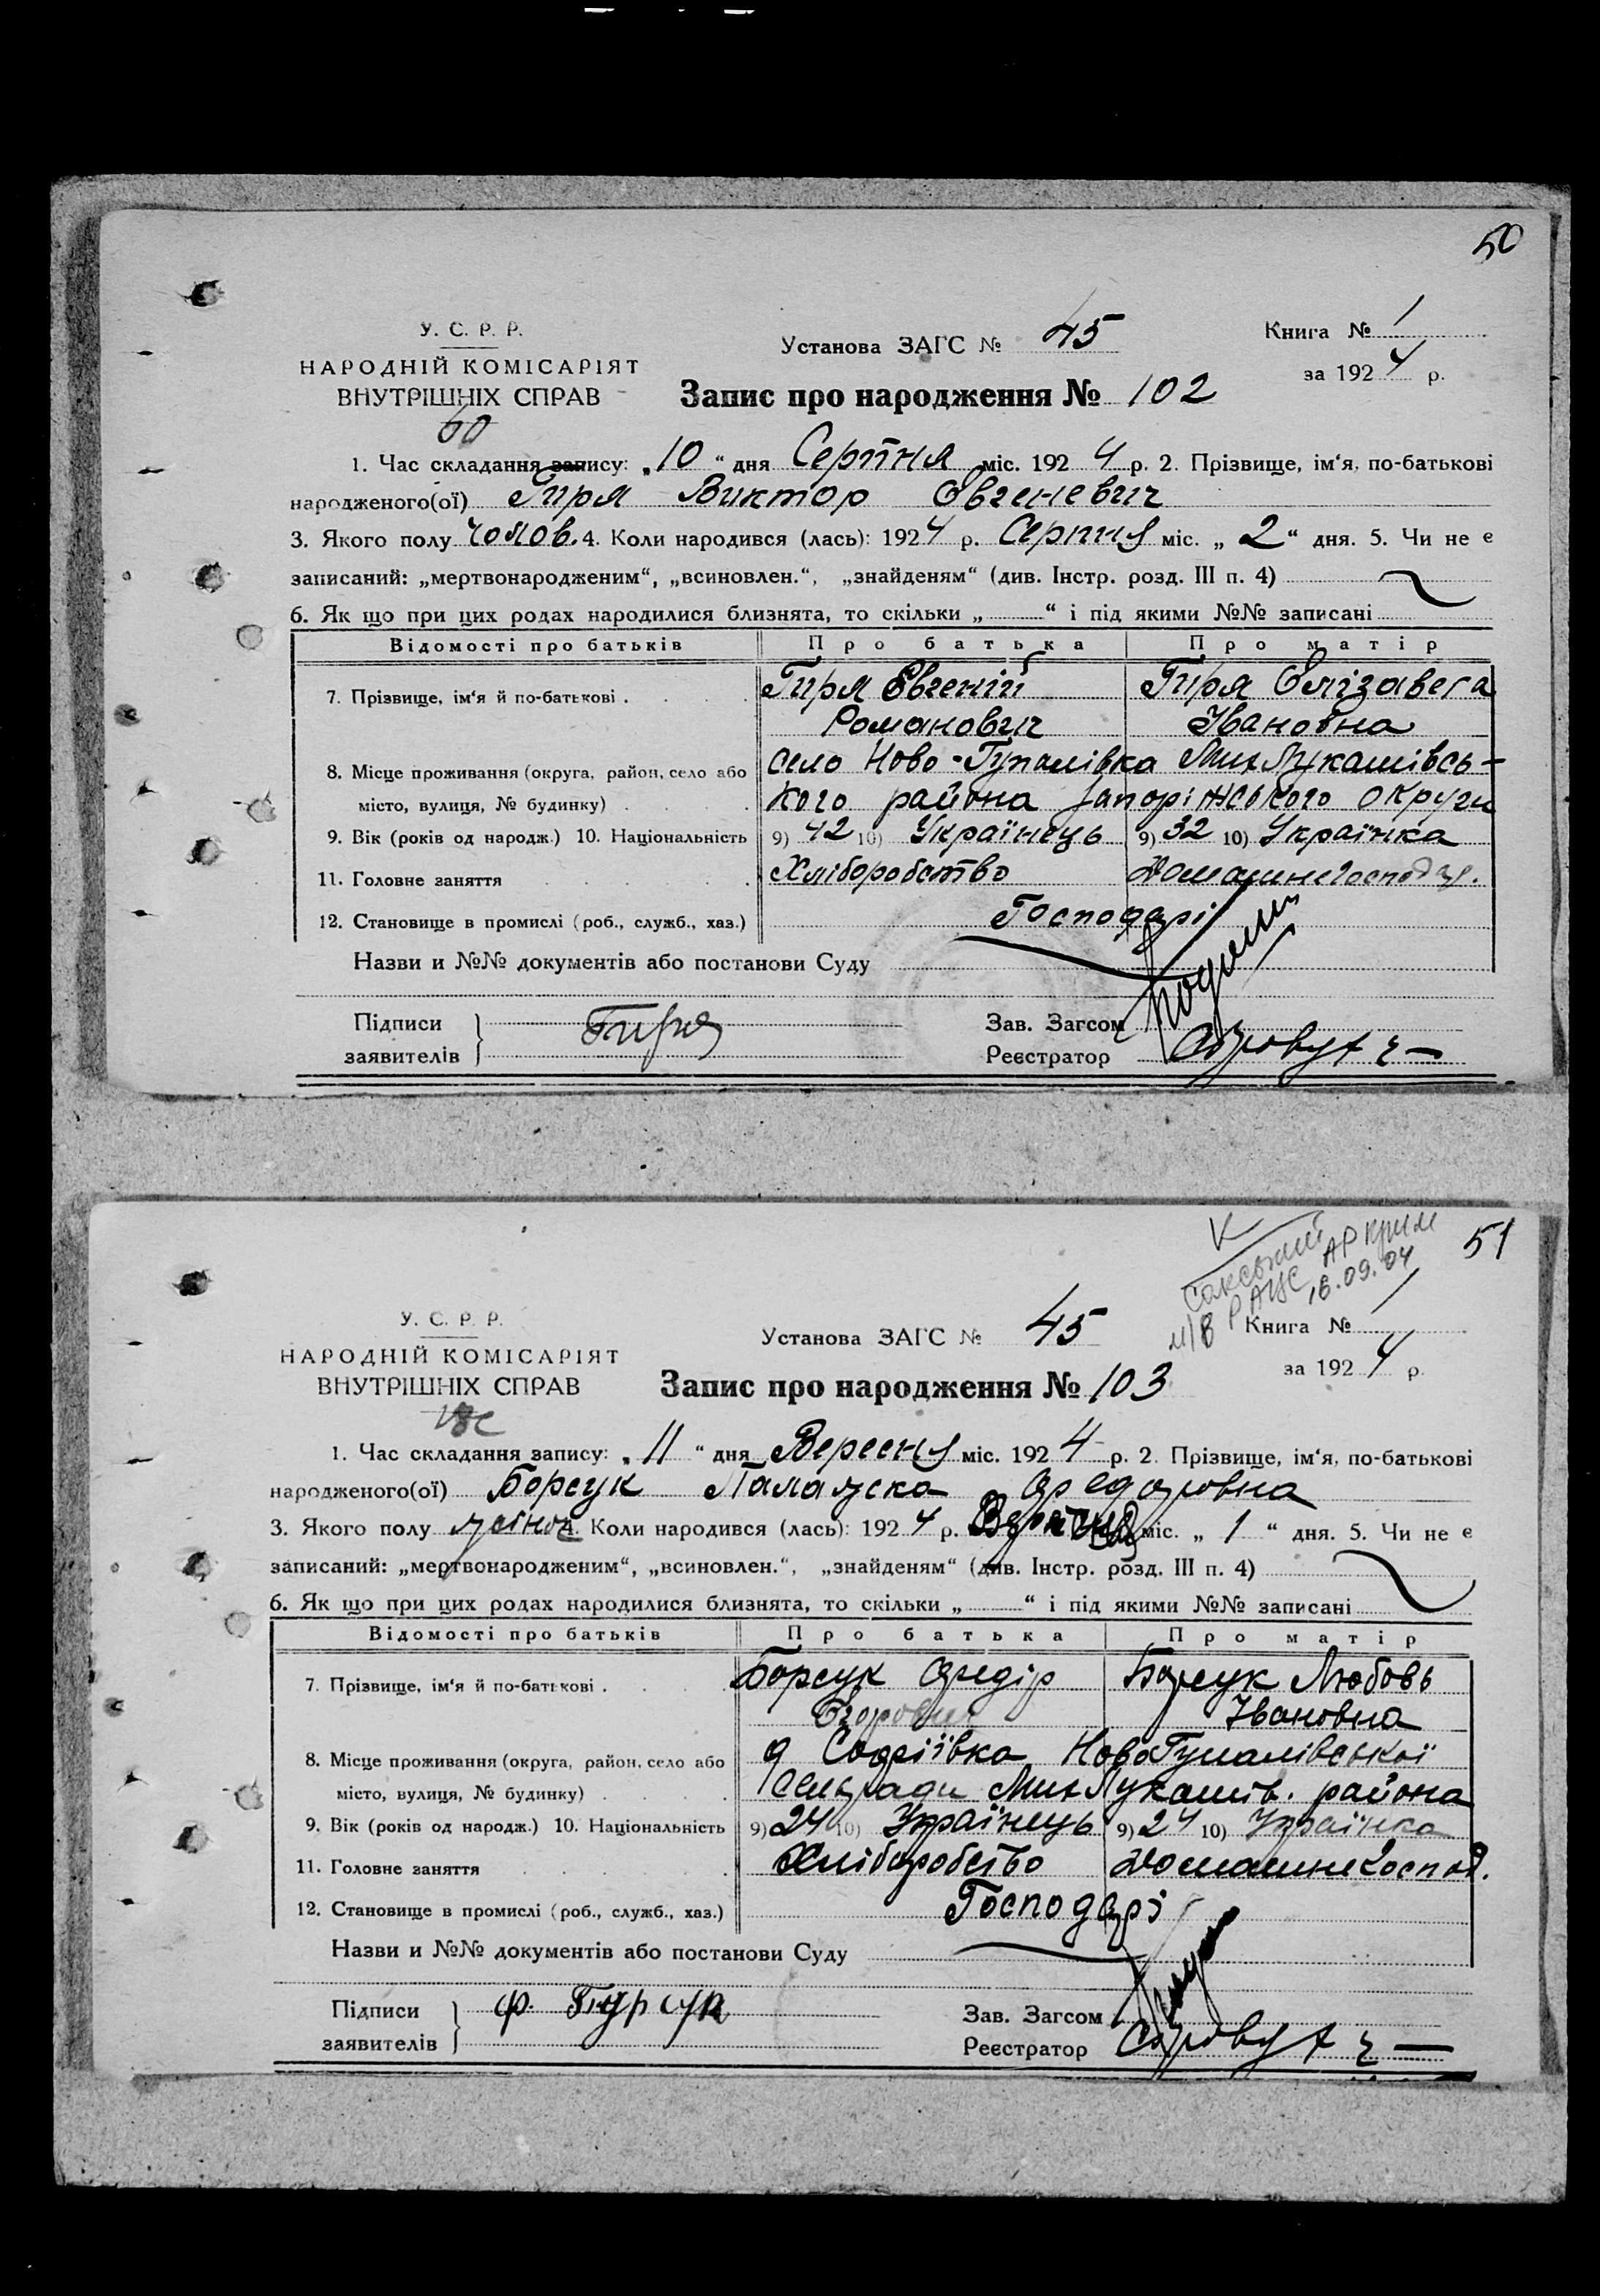 50
У. С. Р. Р.
НАРОДНІЙ КОМІСАРІЯТ
ВНУТРІШНІХ СПРАВ
60
Установа ЗАГС № 45
Книга № 1
за 1924 р.
Запис про народження № 102
1. Час складання запису: „10“ дня Серпня міс. 1924 р. 2. Прізвище, ім‘я, по-батькові
народженого(ої) Гиря Виктор Євгеневич
3. Якого полу чолов. 4. Коли народився (лась): 1924 р. Серпня міс. „2“ дня. 5. Чи не є
записаний: „мертвонародженим“, „всиновлен.“, „знайденям“ (див. Інстр. розд. III п. 4)
6. Як що при цих родах народилися близнята, то скільки „ “ і під якими №№ записані
Відомості про батьків Про батька Про матір
7. Прізвище, ім‘я й по-батькові . Гиря Євгеній Гиря Єлізавета
Романович Івановна
8. Місце проживання (округа, район, село або село Ново-Гупалівка Мих Лукашівсь-
місто, вулиця, № будинку) кого района Запоріжського округи
9. Вік (років од народж.) 10. Національність 9) 42 10) Українець 9) 32 10) Українка
11. Головне заняття Хліборобство Домашнє господ
12. Становище в промислі (роб., служб., хаз.) Господарі
Назви и №№ документів або постанови Суду
Підписи заявителів } Гиря
Зав. Загсом
Реєстратор
51
V
Сакський
РАЦС АР Крим
м/в 16.09.04
У. С. Р. Р.
НАРОДНІЙ КОМІСАРІЯТ
ВНУТРІШНІХ СПРАВ
Установа ЗАГС № 45
Книга № 1
за 1924 р.
Запис про народження № 103
1. Час складання запису: „11“ дня Вересня міс. 1924 р. 2. Прізвище, ім‘я, по-батькові
народженого(ої) Борсук Палажска Федоровна
3. Якого полу жіноч. 4. Коли народився (лась): 1924 р. Вересня міс. „1“ дня. 5. Чи не є
записаний: „мертвонародженим“, „всиновлен.“, „знайденям“ (див. Інстр. розд. III п. 4)
6. Як що при цих родах народилися близнята, то скільки „ “ і під якими №№ записані
Відомості про батьків Про батька Про матір
7. Прізвище, ім‘я й по-батькові . Борсук Федір Борсук Любовь
Єгорович Івановна
8. Місце проживання (округа, район, село або д Софіївка Ново Гупалівської
місто, вулиця, № будинку) Сельради Мих Лукашів. района
9. Вік (років од народж.) 10. Національність 9) 24 10) Українець 9) 24 10) Українка
11. Головне заняття Хліборобство Домашнє господ.
12. Становище в промислі (роб., служб., хаз.) Господарі
Назви и №№ документів або постанови Суду
Підписи заявителів } Ф. Бурсук
Зав. Загсом
Реєстратор